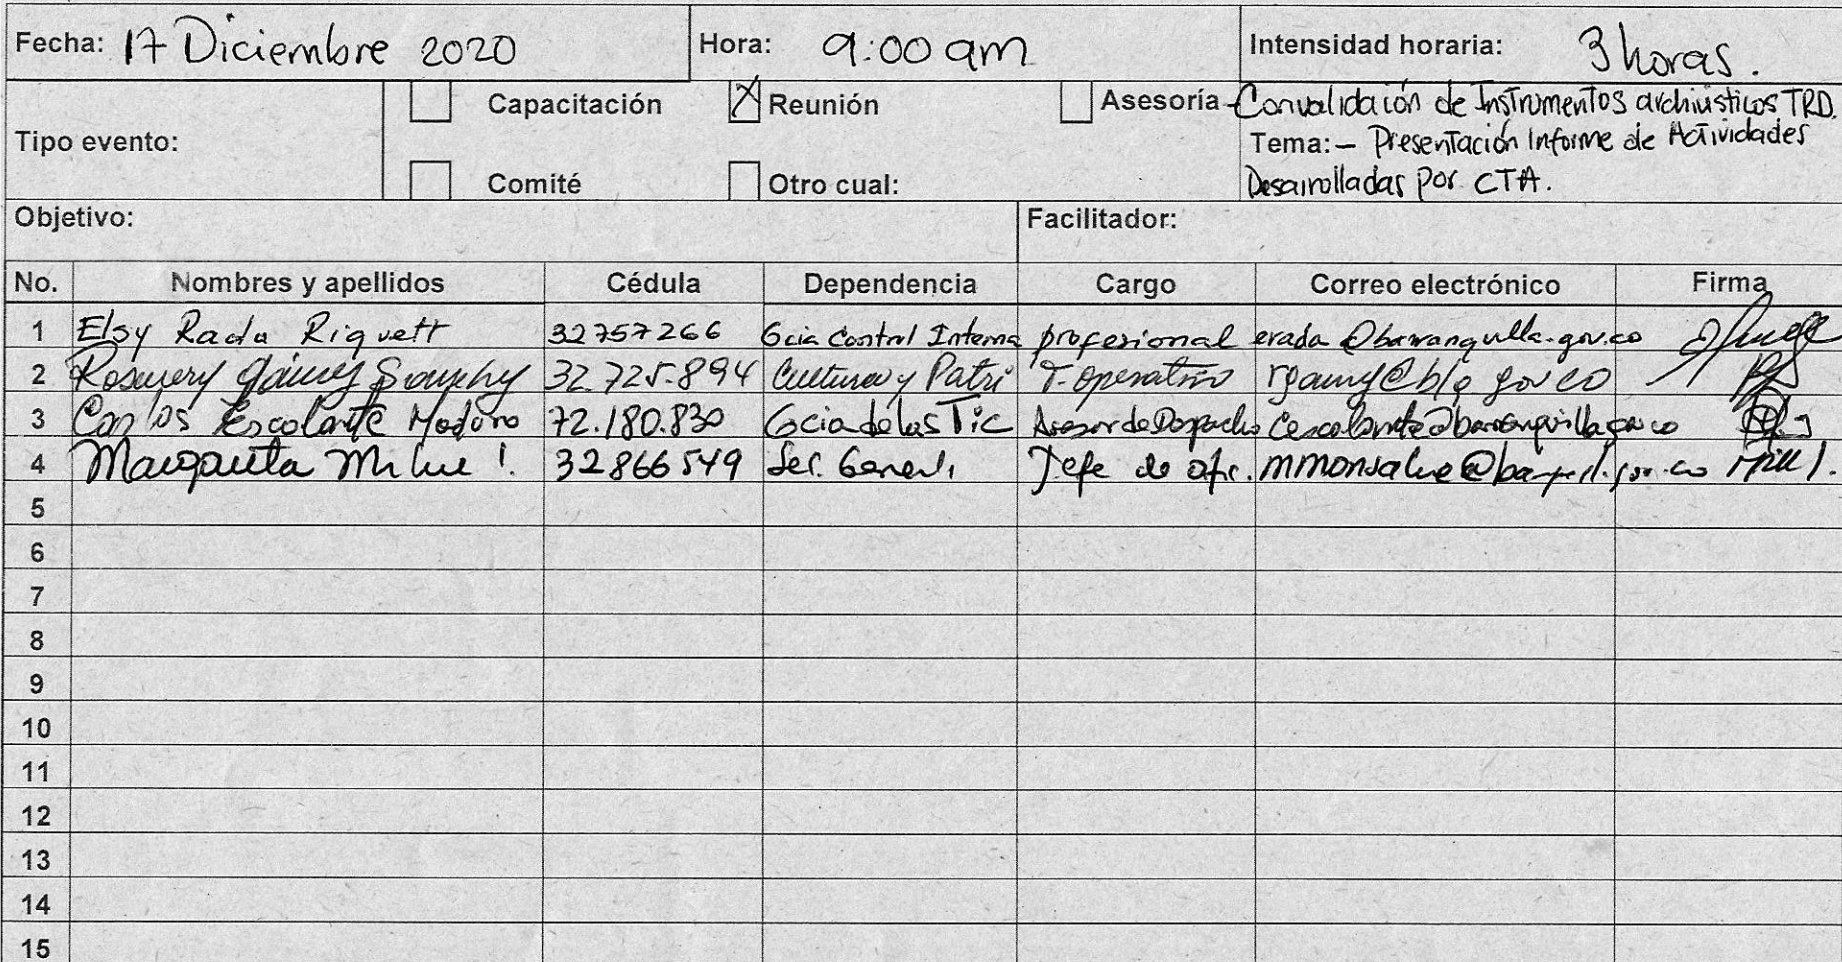 Fecha: 17 Diciembre 2020 Hora: 9:00 am Intensidad horaria: 3 horas.
Tipo evento: Capacitación X Reunión Asesoría - Convalidación de Instrumentos archivisticos TRD.
Tema: - Presentación Informe de Actividades
Comité Otro cual: Desarrolladas por CTA.
Objetivo: Facilitador:
No. Nombres y apellidos Cédula Dependencia Cargo Correo electrónico Firma
1 Elsy Rada Riquett 32757266 Gcia Control Interno profesional erada@barranquilla.gov.co
2 Rosmery 32.725.894 Cultura y Patri T. operativo
3 Carlos Escolante 72.180.830 Gcia de las Tic Asesor de Despacho cescolante@barranquilla.gov.co
4 Margarita 32866549 Sec. General Jefe de ofic.
5
6
7
8
9
10
11
12
13
14
15